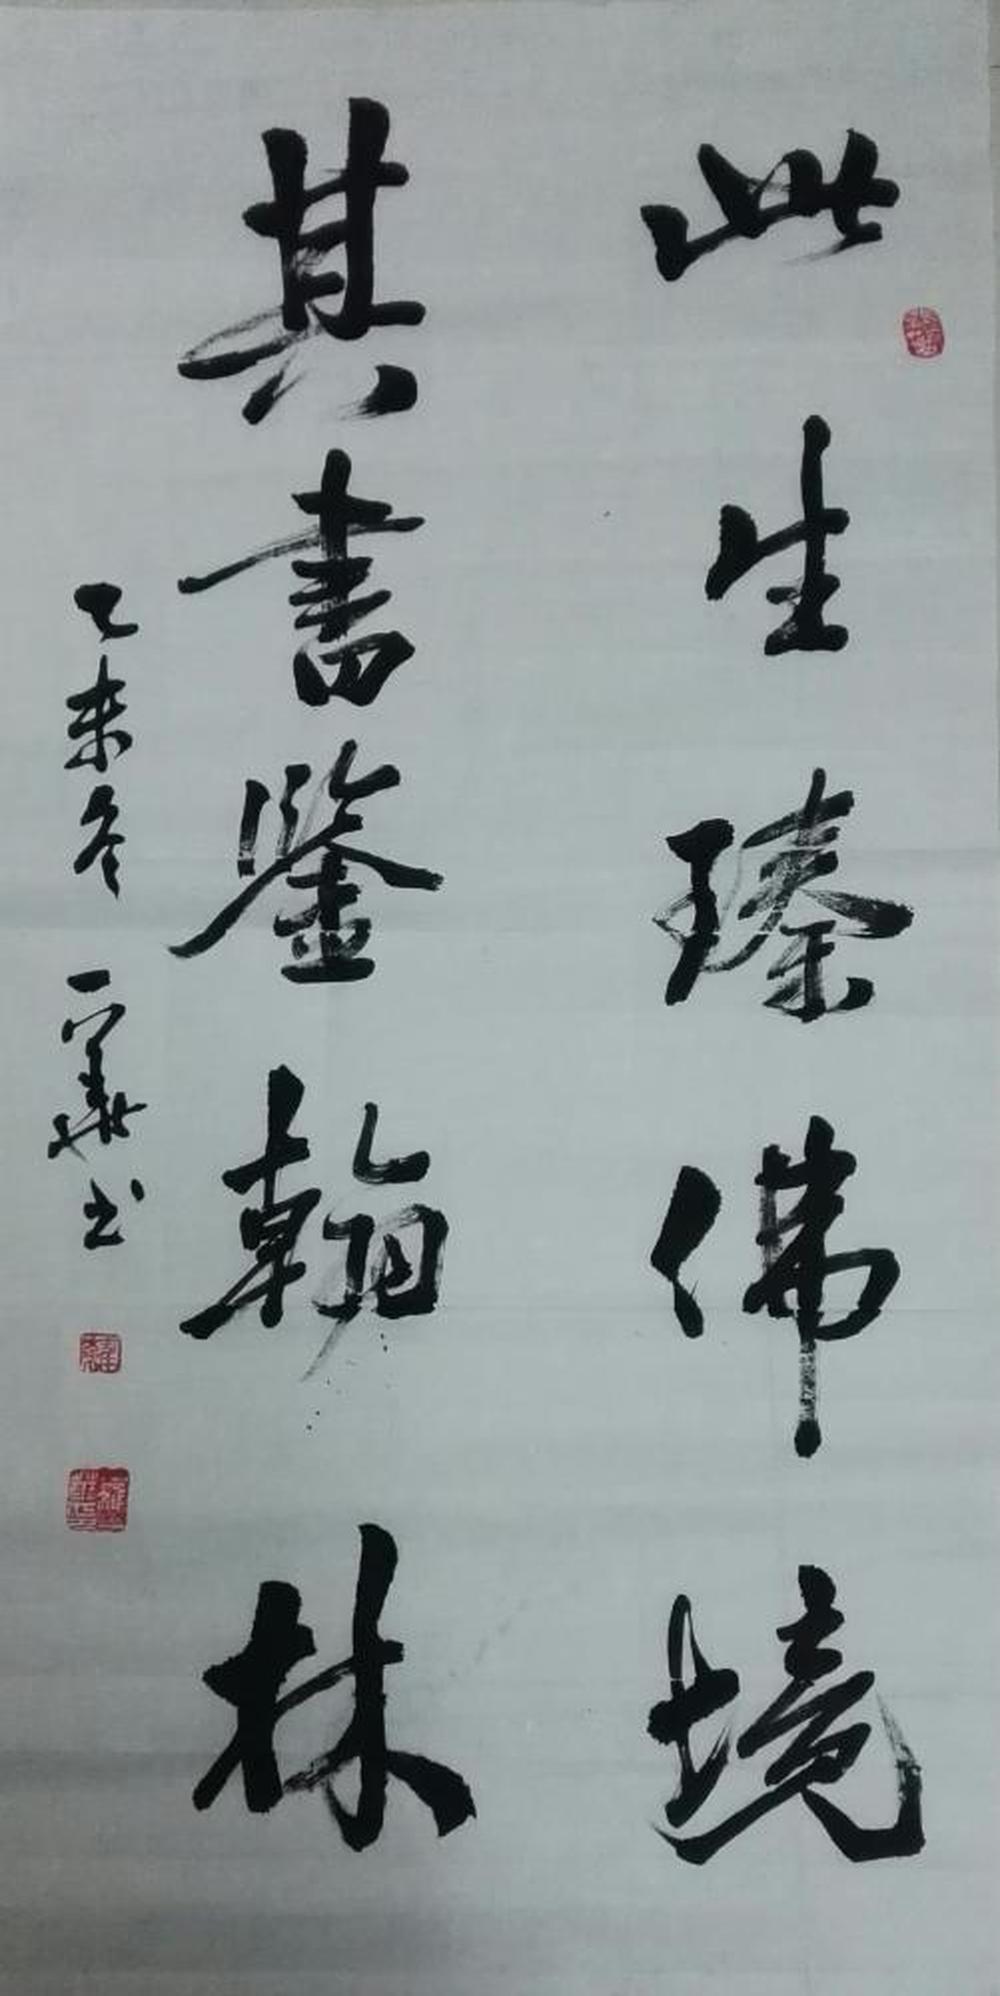 此生臻佛境
其書鑒翰林
乙未冬 一華书